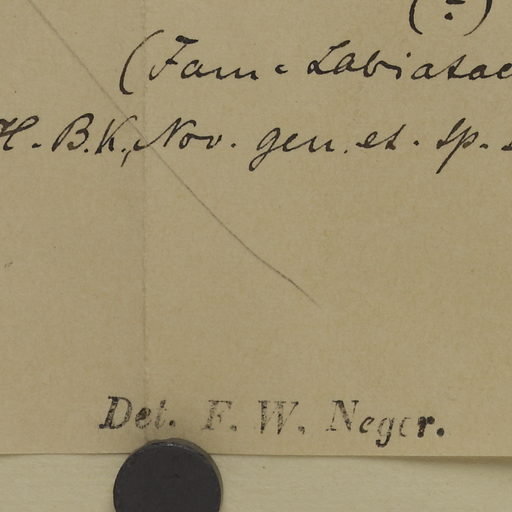 (?)
(Fam: Labiatae
H. B. K., Nov. gen. et. sp.
Det. F. W. Neger.